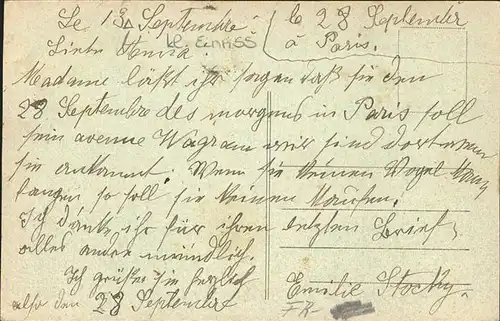 Le 13 Septembre
le 28 September
à Paris.
Liebe Anna.
Madame läßt ihr sagen daß sie den
28 Septembre des morgens in Paris soll
sein avenue Wagram wir sind dort wenn
sie ankommt. Wenn sie keinen Vogel kann
fangen so soll sie keinen kaufen.
Ich danke ihr für ihren letzten Brief
alles andre mündlich.
Ich grüße sie herzlich
also den 28 Septembre
Emilie
FR-